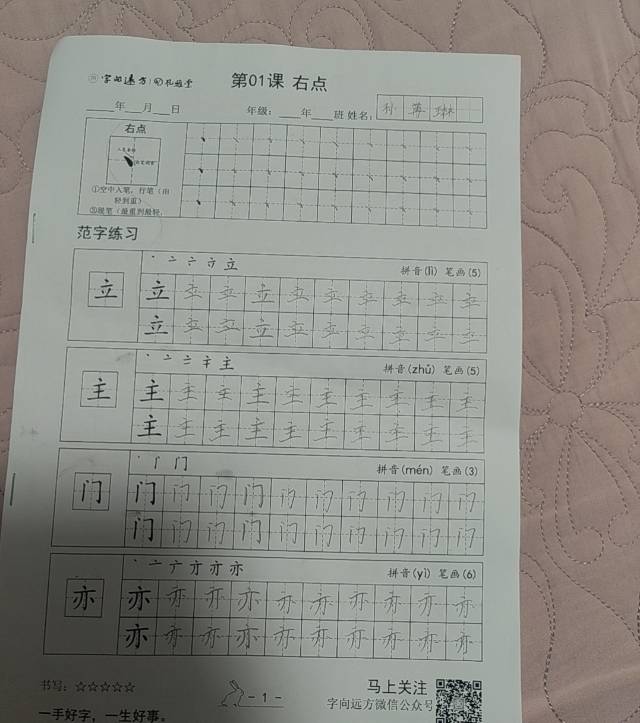 字向远方
第01课 右点
年 月 日 年级: 年 班 姓名:
右点
①空中入笔,行笔(由
轻到重)
范字练习
丶 二 亠 立
拼音(lì) 笔画(5)
立 立 立 立 立 立 立 立 立 立 立
立 立 立 立 立 立 立 立 立 立
拼音(zhǔ) 笔画(5)
主 主 主 主 主 主 主 主 主 主 主
主 主 主 主 主 主 主 主 主 主
丶 丨 门
拼音(mén) 笔画(3)
门 门 门 门 门 门 门 门 门 门 门
门 门 门 门 门 门 门 门 门 门
拼音(yì) 笔画(6)
亦 亦 亦 亦 亦 亦 亦 亦 亦 亦 亦
亦 亦 亦 亦 亦 亦 亦 亦 亦 亦
书写: ☆☆☆☆☆
- 1 -
马上关注
字向远方微信公众号
一手好字,一生好事。